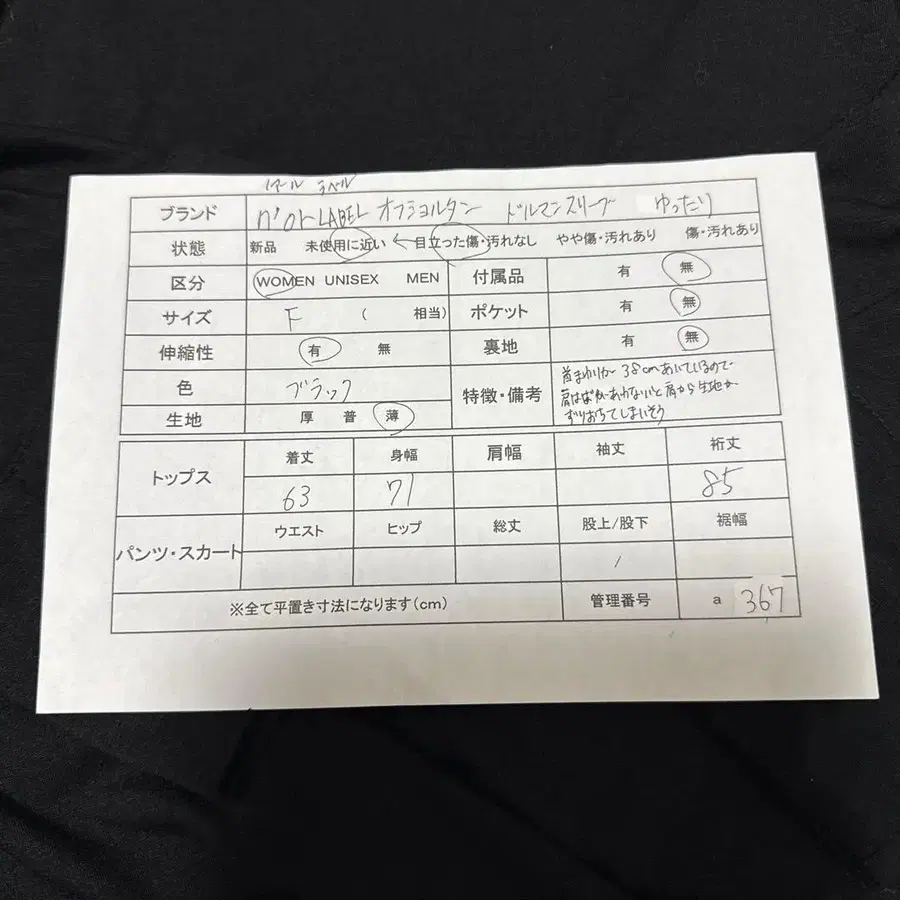 ノアール ラベル
ブランド n'or LABEL オフショルダン ドルマンスリーブ ゆったり
状態 新品 未使用に近い ← 目立った傷・汚れなし やや傷・汚れあり 傷・汚れあり
区分 WOMEN UNISEX MEN 付属品 有 無
サイズ F ( 相当) ポケット 有 無
伸縮性 有 無 裏地 有 無
色 ブラック 特徴・備考 首まわりが 38cmあいているので
肩はば
肩から生地が
ずりおちてしまいそう
生地 厚 普 薄
トップス 着丈 身幅 肩幅 袖丈 裄丈
63 71 85
パンツ・スカート ウエスト ヒップ 総丈 股上/股下 裾幅
/
※全て平置き寸法になります(cm) 管理番号 a 367